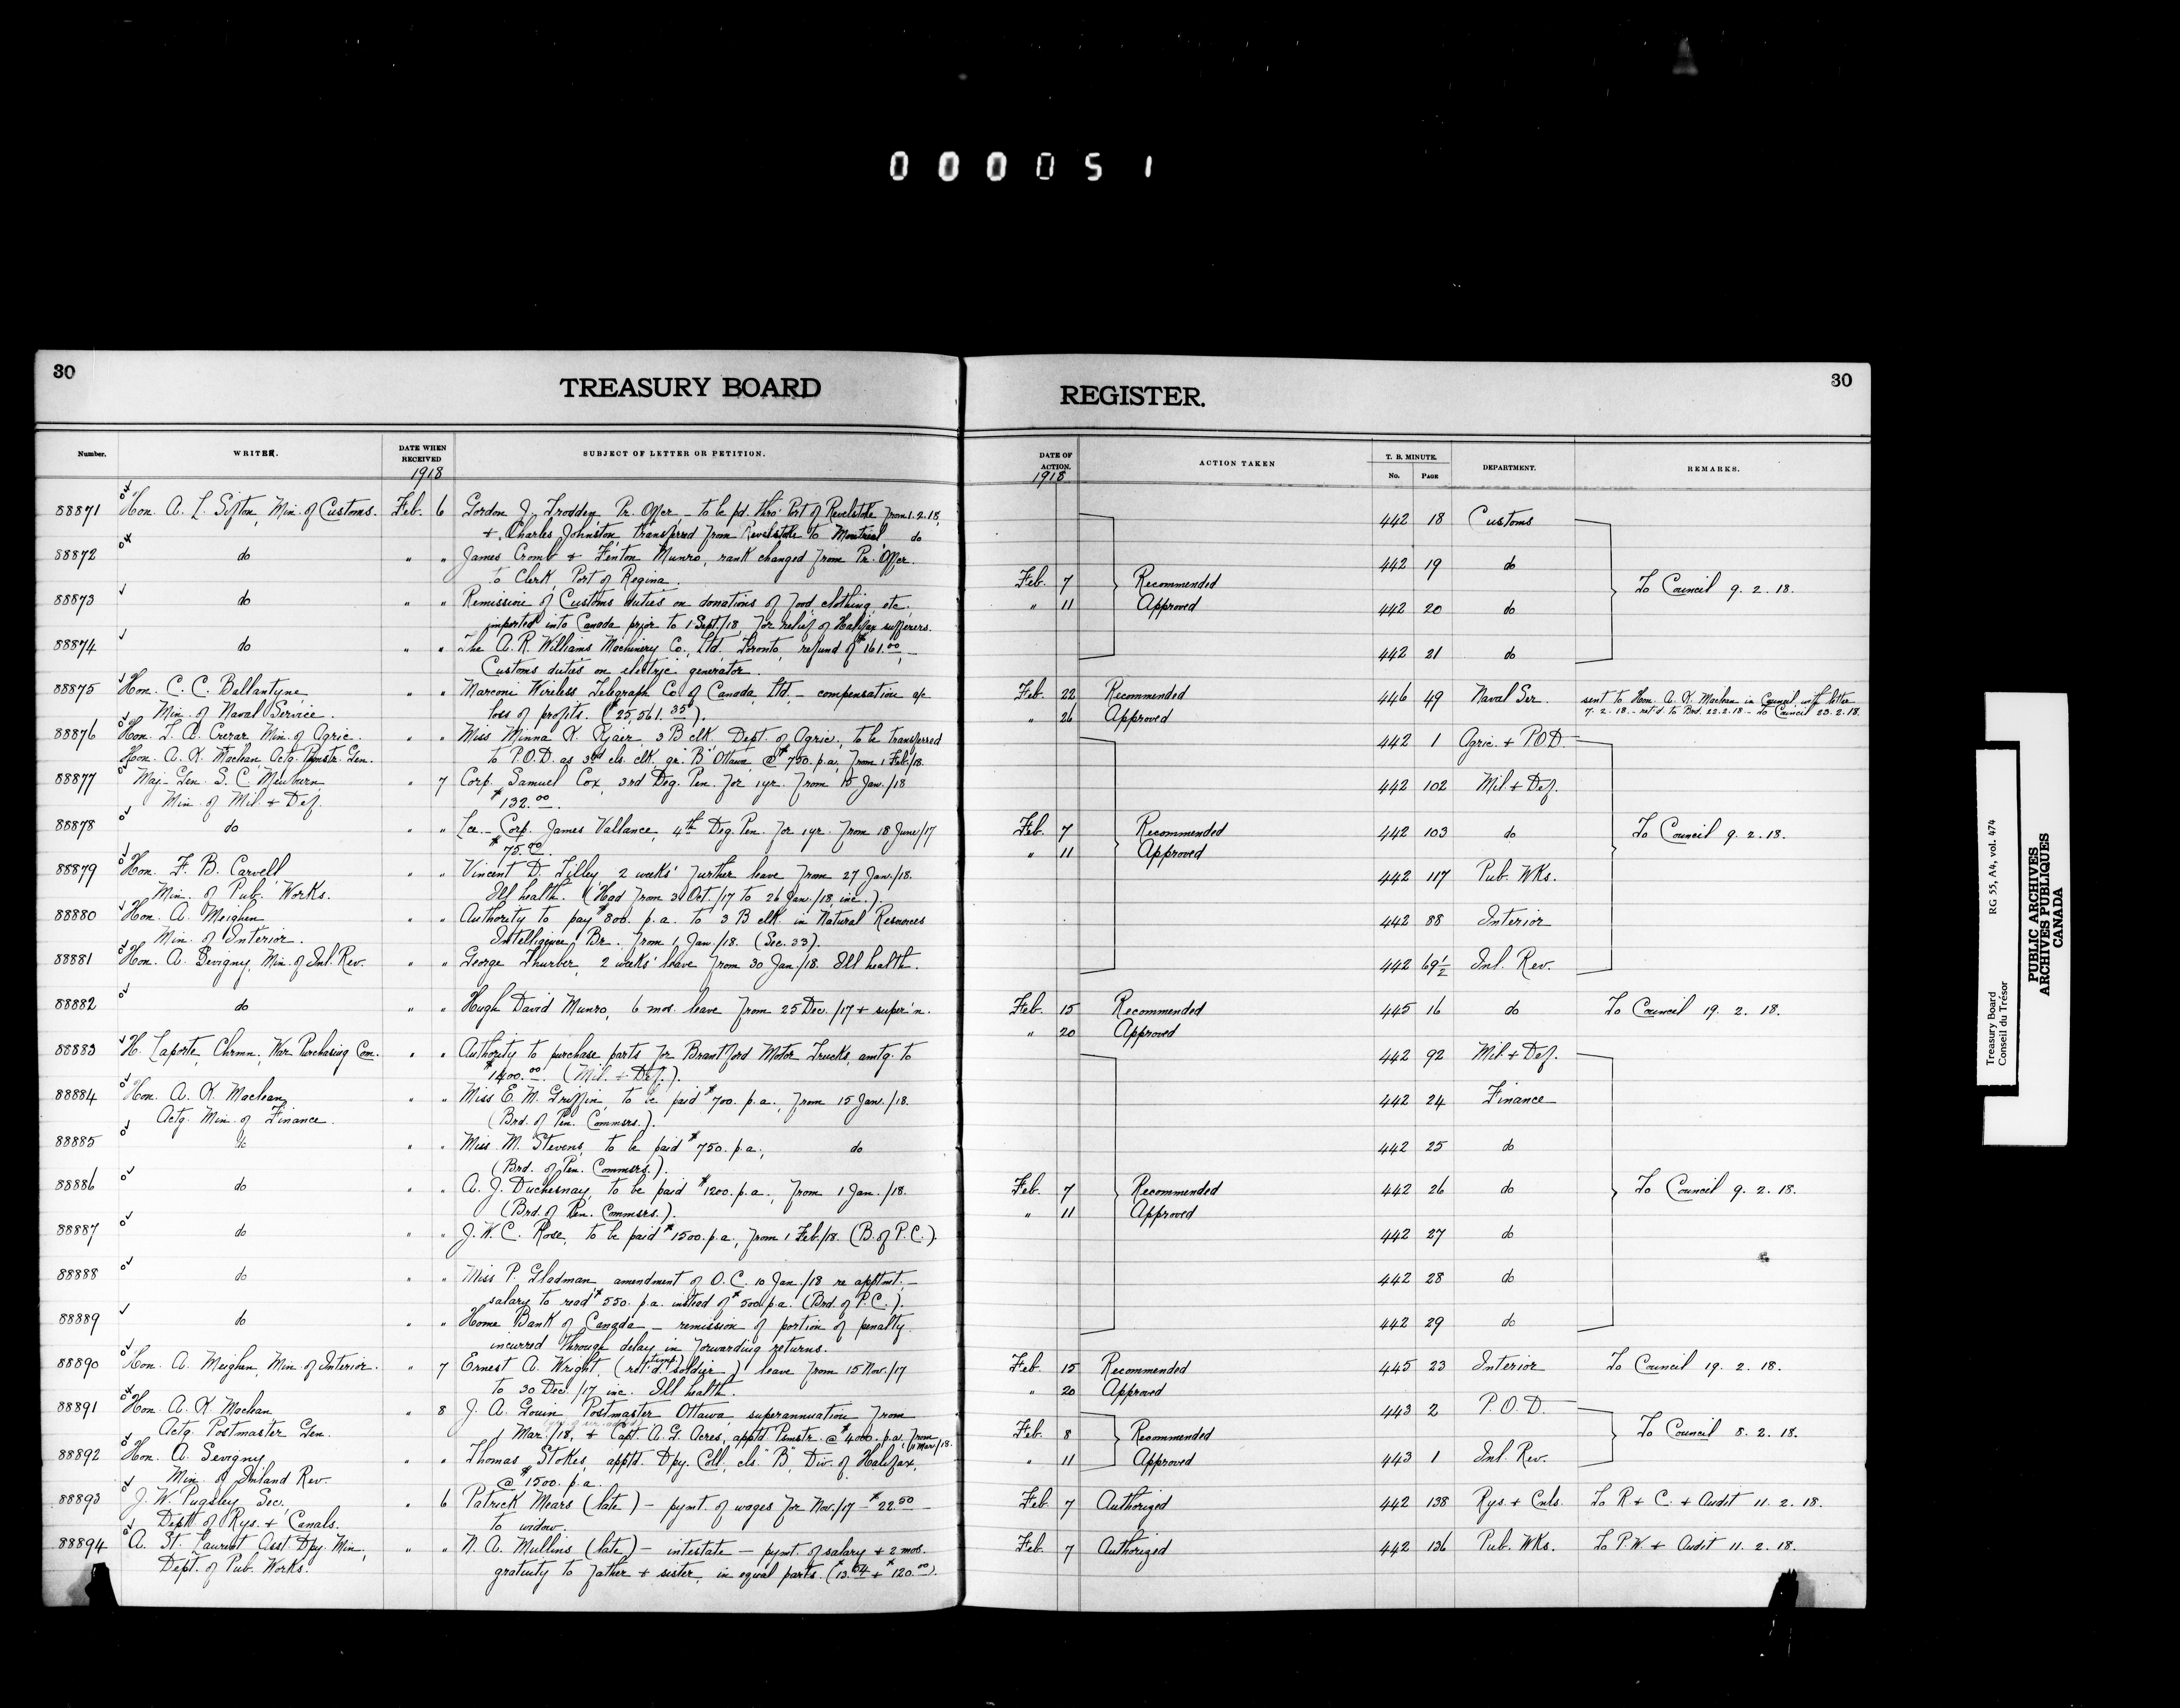 000051
30
TREASURY BOARD
REGISTER.
30
Number.
WRITER.
DATE WHEN RECEIVED
1918
SUBJECT OF LETTER OR PETITION.
DATE OF ACTION.
1918
ACTION TAKEN
T. B. MINUTE.
No.
PAGE
DEPARTMENT.
REMARKS.
88871 Hon. A. L. Sifton, Min. of Customs. Feb. 6 Gordon J. Trodden Pr. Offcer - to be pd. thro' Port of Revelstoke from 1.2.18, 442 18 Customs
+ Charles Johnston transferred from Revelstoke to Montreal do
88872 do " " James Cromb + Fenton Munro, rank changed from Pr. Offcer. 442 19 do
to Clerk, Port of Regina. Feb. 7 Recommended To Council 9. 2. 18.
88873 do " " Remission of Customs duties on donations of food, clothing, etc. " 11 Approved 442 20 do
imported into Canada prior to 1 Sept./18, for relief of Halifax sufferers.
88874 do " " The A. R. Williams Machinery Co., Ltd. Toronto, refund of $161.00, - 442 21 do
Customs duties on electric generator.
88875 Hon. C. C. Ballantyne " " Marconi Wireless Telegraph Co. of Canada, Ltd. - compensation a/c Feb. 22 Recommended 446 49 Naval Ser. sent to Hon. A. K. Maclean in Council with letter
Min. of Naval Service. loss of profits. ($25,561.35). " 26 Approved 7. 2. 18. - ret'd. to Brd. 22.2.18 - To Council 23. 2. 18.
88876 Hon. T. A. Crerar Min. of Agric. " " Miss Minna K. Kjaer, 3 B clk. Dept. of Agric., to be transferred 442 1 Agric. + P.O.D.
Hon. A. K. Maclean, Actg. Pmstr. Gen. to P.O.D. as 3rd cls. clk. gr. "B" Ottawa @ $750. p.a. from 1 Feb./18.
88877 Maj.-Gen. S. C. Mewburn " 7 Corp. Samuel Cox, 3rd Deg. Pen. for 1 yr. from 15 Jan./18 442 102 Mil. + Def.
Min. of Mil. + Def. $132.00.
88878 do " " Lce.-Corp. James Vallance, 4th Deg. Pen. for 1 yr. from 18 June/17 Feb. 7 Recommended 442 103 do To Council 9. 2. 18.
$75.00. " 11 Approved
88879 Hon. F. B. Carvell " " Vincent D. Lilley 2 weeks' further leave from 27 Jan./18. 442 117 Pub. Wks.
Min. of Pub. Works. Ill health. (Had from 3 Oct./17 to 26 Jan./18, inc.).
88880 Hon. A. Meighen " " Authority to pay $800. p.a. to 3 B clk. in Natural Resources 442 88 Interior
Min. of Interior. Intelligence Br. from 1 Jan./18. (Sec. 33).
88881 Hon. A. Sevigny, Min. of Inl. Rev. " " George Thurber, 2 weeks' leave from 30 Jan./18. Ill health. 442 69½ Inl. Rev.
88882 do " " Hugh David Munro, 6 mos. leave from 25 Dec./17 + super'n. Feb. 15 Recommended 445 16 do To Council 19. 2. 18.
" 20 Approved
88883 H. Laporte, Chrmn. War Purchasing Com. " " Authority to purchase parts for Brantford Motor Trucks, amtg. to 442 92 Mil. + Def.
$1400.00. (Mil. + Def.).
88884 Hon. A. K. Maclean " " Miss E. M. Griffin, to be paid $700. p.a., from 15 Jan./18. 442 24 Finance
Actg. Min. of Finance. (Brd. of Pen. Commsrs.).
88885 do " " Miss M. Stevens, to be paid $750. p.a., do 442 25 do
(Brd. of Pen. Commsrs.).
88886 do " " A. J. Duchesnay, to be paid $1200. p.a., from 1 Jan./18. Feb. 7 Recommended 442 26 do To Council 9. 2. 18.
(Brd. of Pen. Commsrs.). " 11 Approved
88887 do " " J. W. C. Rose, to be paid $1500. p.a., from 1 Feb./18. (B. of P.C.). 442 27 do
88888 do " " Miss P. Gladman amendment of O.C. 10 Jan./18 re apptmt. - 442 28 do
salary to read $550. p.a. instead of $500 p.a. (Brd. of P.C.).
88889 do " " Home Bank of Canada - remission of portion of penalty 442 29 do
incurred through delay in forwarding returns.
88890 Hon. A. Meighen, Min. of Interior. " 7 Ernest A. Wright, (ret'd. soldier) leave from 15 Nov./17 Feb. 15 Recommended 445 23 Interior To Council 19. 2. 18.
to 30 Dec./17 inc. Ill health. " 20 Approved
88891 Hon. A. K. Maclean " 8 J. A. Gouin Postmaster Ottawa, superannuation from 443 2 P.O.D.
Actg. Postmaster Gen. 1 Mar./18, + Capt. A. G. Acres, apptd. Pmstr. @ $4000. p.a. from 11 Mar./18. Feb. 8 Recommended To Council 8. 2. 18.
88892 Hon. A. Sevigny " " Thomas Stokes, apptd. Dpy. Coll. cls. "B", Div. of Halifax, " 11 Approved 443 1 Inl. Rev.
Min. of Inland Rev. @ $1500. p.a.
88893 J. W. Pugsley Sec. " 6 Patrick Mears (late) - pymt. of wages for Nov./17 - $22.50 - Feb. 7 Authorized 442 138 Rys. + Cnls. To R + C. + Audit 11. 2. 18.
Deptt. of Rys. + Canals. to widow.
88894 A. St. Laurent Asst. Dpy. Min., " " N. A. Mullins (late) - intestate - pymt. of salary + 2 mos. Feb. 7 Authorized 442 136 Pub. Wks. To P.W. + Audit 11. 2. 18.
Dept. of Pub. Works. gratuity to father + sister, in equal parts. ($13.04 + $120.00).
Treasury Board RG 55, A4, vol. 474
Conseil du Trésor
PUBLIC ARCHIVES
ARCHIVES PUBLIQUES
CANADA